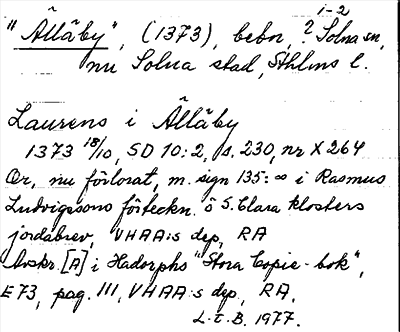 1-2
"Ållåby", (1373), bebn, ? Solna sn,
nu Solna stad, Sthlms l.
Laurens i Ållåby
1373 18/10, SD 10:2, s. 230, nr X 264
Or, nu förlorat, m. sign 135: ∞ i Rasmus
Ludvigssons förteckn. ö S. Clara klosters
jordabrev, VHAA:s dep, RA
Avskr. [A] i Hadorphs "Stora Copie-bok",
E 73, pag. 111, VHAA:s dep, RA.
L.E.B. 1977.